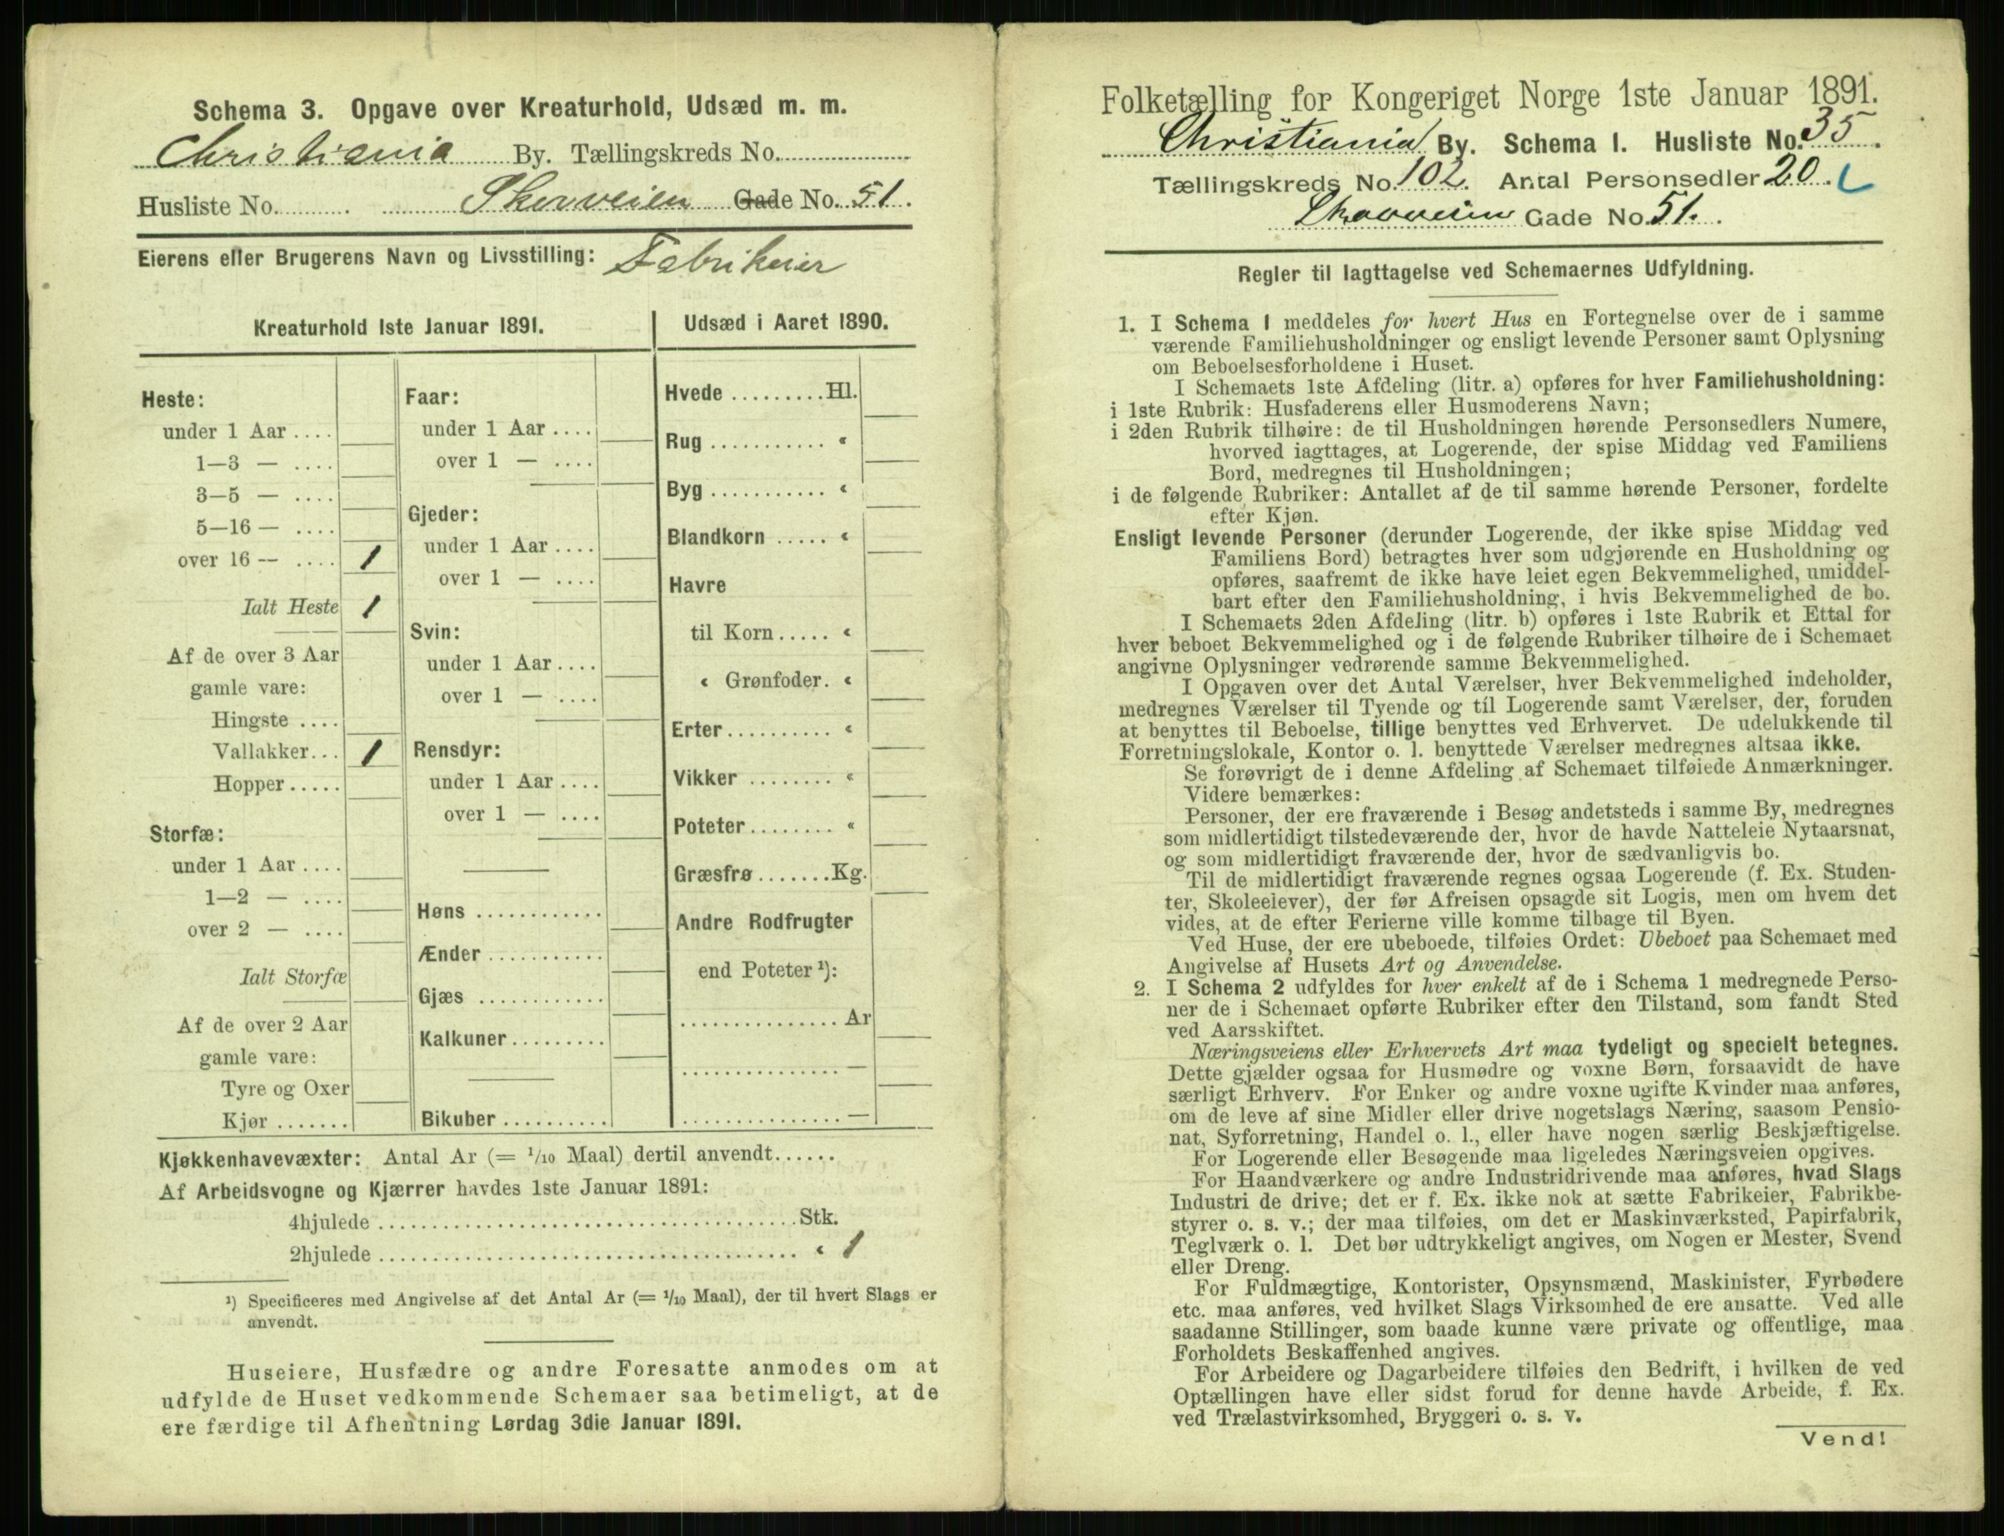 Schema 3. Opgave over Kreaturhold, Udsæd m. m.
Christiania By. Tællingskreds No.
Husliste No. Skovveien Gade No. 51.
Eierens eller Brugerens Navn og Livsstilling: Fabrikeier
Kreaturhold 1ste Januar 1891.
Heste:
under 1 Aar ....
1—3 — ....
3—5 — ....
5—16 — ....
over 16 — .... 1
Ialt Heste 1
Af de over 3 Aar
gamle vare:
Hingste ....
Vallakker... 1
Hopper.....
Storfæ:
under 1 Aar ....
1—2 — ....
over 2 — ....
Ialt Storfæ
Af de over 2 Aar
gamle vare:
Tyre og Oxer
Kjør .......
Faar:
under 1 Aar ....
over 1 — ....
Gjeder:
under 1 Aar ....
over 1 — ....
Svin:
under 1 Aar ....
over 1 — ....
Rensdyr:
under 1 Aar ....
over 1 — ....
Høns ............
Ænder ...........
Gjæs ............
Kalkuner.........
Bikuber ..........
Udsæd i Aaret 1890.
Hvede .........Hl.
Rug ........... «
Byg ........... «
Blandkorn ..... «
Havre
til Korn ..... «
« Grønfoder. «
Erter.......... «
Vikker ........ «
Poteter........ «
Græsfrø .......Kg.
Andre Rodfrugter
end Poteter ¹):
............... Ar
............... —
............... —
Kjøkkenhavevæxter: Antal Ar (= 1/10 Maal) dertil anvendt......
Af Arbeidsvogne og Kjærrer havdes 1ste Januar 1891:
4hjulede ..........Stk.
2hjulede .......... « 1
¹) Specificeres med Angivelse af det Antal Ar (= 1/10 Maal), der til hvert Slags er
anvendt.
Huseiere, Husfædre og andre Foresatte anmodes om at
udfylde de Huset vedkommende Schemaer saa betimeligt, at de
ere færdige til Afhentning Lørdag 3die Januar 1891.
Folketælling for Kongeriget Norge 1ste Januar 1891.
Christiania By. Schema I. Husliste No. 35.
Tællingskreds No. 102. Antal Personsedler 20.
Skovveien Gade No. 51.
Regler til Iagttagelse ved Schemaernes Udfyldning.
1. I Schema 1 meddeles for hvert Hus en Fortegnelse over de i samme
værende Familiehusholdninger og ensligt levende Personer samt Oplysning
om Beboelsesforholdene i Huset.
I Schemaets 1ste Afdeling (litr. a) opføres for hver Familiehusholdning:
i 1ste Rubrik: Husfaderens eller Husmoderens Navn;
i 2den Rubrik tilhøire: de til Husholdningen hørende Personsedlers Numere,
hvorved iagttages, at Logerende, der spise Middag ved Familiens
Bord, medregnes til Husholdningen;
i de følgende Rubriker: Antallet af de til samme hørende Personer, fordelte
efter Kjøn.
Ensligt levende Personer (derunder Logerende, der ikke spise Middag ved
Familiens Bord) betragtes hver som udgjørende en Husholdning og
opføres, saafremt de ikke have leiet egen Bekvemmelighed, umiddel-
bart efter den Familiehusholdning, i hvis Bekvemmelighed de bo.
I Schemaets 2den Afdeling (litr. b) opføres i 1ste Rubrik et Ettal for
hver beboet Bekvemmelighed og i de følgende Rubriker tilhøire de i Schemaet
angivne Oplysninger vedrørende samme Bekvemmelighed.
I Opgaven over det Antal Værelser, hver Bekvemmelighed indeholder,
medregnes Værelser til Tyende og til Logerende samt Værelser, der, foruden
at benyttes til Beboelse, tillige benyttes ved Erhvervet. De udelukkende til
Forretningslokale, Kontor o. l. benyttede Værelser medregnes altsaa ikke.
Se forøvrigt de i denne Afdeling af Schemaet tilføiede Anmærkninger.
Videre bemærkes:
Personer, der ere fraværende i Besøg andetsteds i samme By, medregnes
som midlertidigt tilstedeværende der, hvor de havde Natteleie Nytaarsnat,
og som midlertidigt fraværende der, hvor de sædvanligvis bo.
Til de midlertidigt fraværende regnes ogsaa Logerende (f. Ex. Studen-
ter, Skoleelever), der før Afreisen opsagde sit Logis, men om hvem det
vides, at de efter Ferierne ville komme tilbage til Byen.
Ved Huse, der ere ubeboede, tilføies Ordet: Ubeboet paa Schemaet med
Angivelse af Husets Art og Anvendelse.
2. I Schema 2 udfyldes for hver enkelt af de i Schema 1 medregnede Perso-
ner de i Schemaet opførte Rubriker efter den Tilstand, som fandt Sted
ved Aarsskiftet.
Næringsveiens eller Erhvervets Art maa tydeligt og specielt betegnes.
Dette gjælder ogsaa for Husmødre og voxne Børn, forsaavidt de have
særligt Erhverv. For Enker og andre voxne ugifte Kvinder maa anføres,
om de leve af sine Midler eller drive nogetslags Næring, saasom Pensio-
nat, Syforretning, Handel o. l., eller have nogen særlig Beskjæftigelse.
For Logerende eller Besøgende maa ligeledes Næringsveien opgives.
For Haandværkere og andre Industridrivende maa anføres, hvad Slags
Industri de drive; det er f. Ex. ikke nok at sætte Fabrikeier, Fabrikbe-
styrer o. s. v.; der maa tilføies, om det er Maskinværksted, Papirfabrik,
Teglværk o. l. Det bør udtrykkeligt angives, om Nogen er Mester, Svend
eller Dreng.
For Fuldmægtige, Kontorister, Opsynsmænd, Maskinister, Fyrbødere
etc. maa anføres, ved hvilket Slags Virksomhed de ere ansatte. Ved alle
saadanne Stillinger, som baade kunne være private og offentlige, maa
Forholdets Beskaffenhed angives.
For Arbeidere og Dagarbeidere tilføies den Bedrift, i hvilken de ved
Optællingen have eller sidst forud for denne havde Arbeide, f. Ex.
ved Trælastvirksomhed, Bryggeri o. s. v.
Vend!